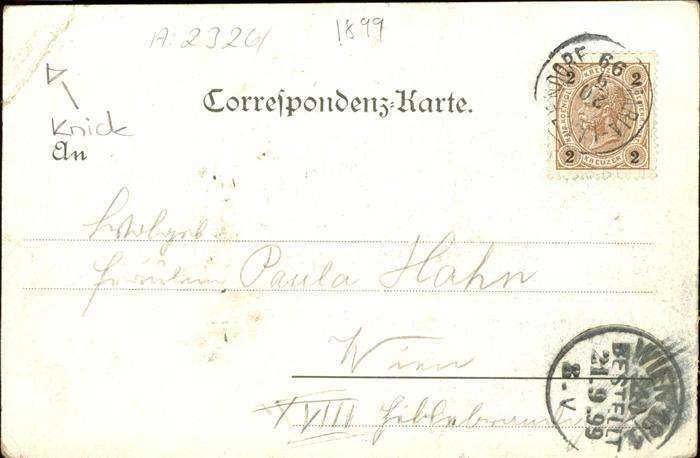 A. 2326
1899
Correſpondenz-Karte.
Knick
An
2 KREUZER 2
2 KREUZER 2
Wohlgeb.
Fräulein Paula Hahn
Wien
XVIII
WIEN
BESTELLT
21.9.99
8.V.